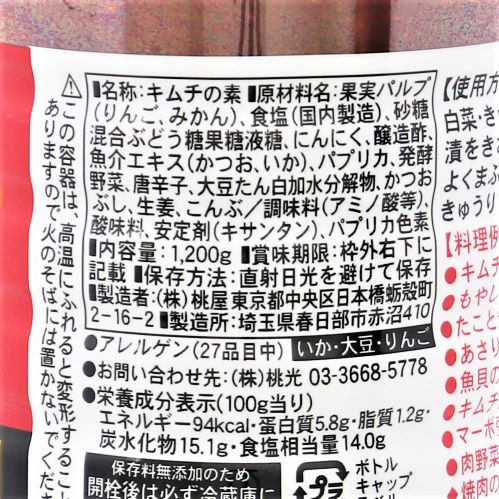 ■名称:キムチの素 ■原材料名:果実パルプ
(りんご、みかん)、食塩(国内製造)、砂糖
混合ぶどう糖果糖液糖、にんにく、醸造酢、
魚介エキス(かつお、いか)、パプリカ、発酵
野菜、唐辛子、大豆たん白加水分解物、かつお
ぶし、生姜、こんぶ/調味料(アミノ酸等)、
酸味料、安定剤(キサンタン)、パプリカ色素
■内容量:1,200g ■賞味期限:枠外右下に
記載 ■保存方法:直射日光を避けて保存
■製造者:(株)桃屋東京都中央区日本橋蛎殻町
2-16-2 ■製造所:埼玉県春日部市赤沼410
●アレルゲン(27品目中) いか・大豆・りんご
●お問い合わせ先:(株)桃光 03-3668-5778
●栄養成分表示(100g当り)
エネルギー94kcal・蛋白質5.8g・脂質1.2g・
炭水化物15.1g・食塩相当量14.0g
保存料無添加のため
開栓後は必ず冷蔵庫に
ボトル
キャップ
この容器は、高温にふれると変形すること
ありますので火のそばには置かないでくださ
【使用方
白菜・き
漬をき
よくまぶ
きゅうり
【料理例
●キムチ
●もやし
●たこと
●あさり
●魚貝の
●キムチ
●マーボ豆
●肉野菜
●焼肉の